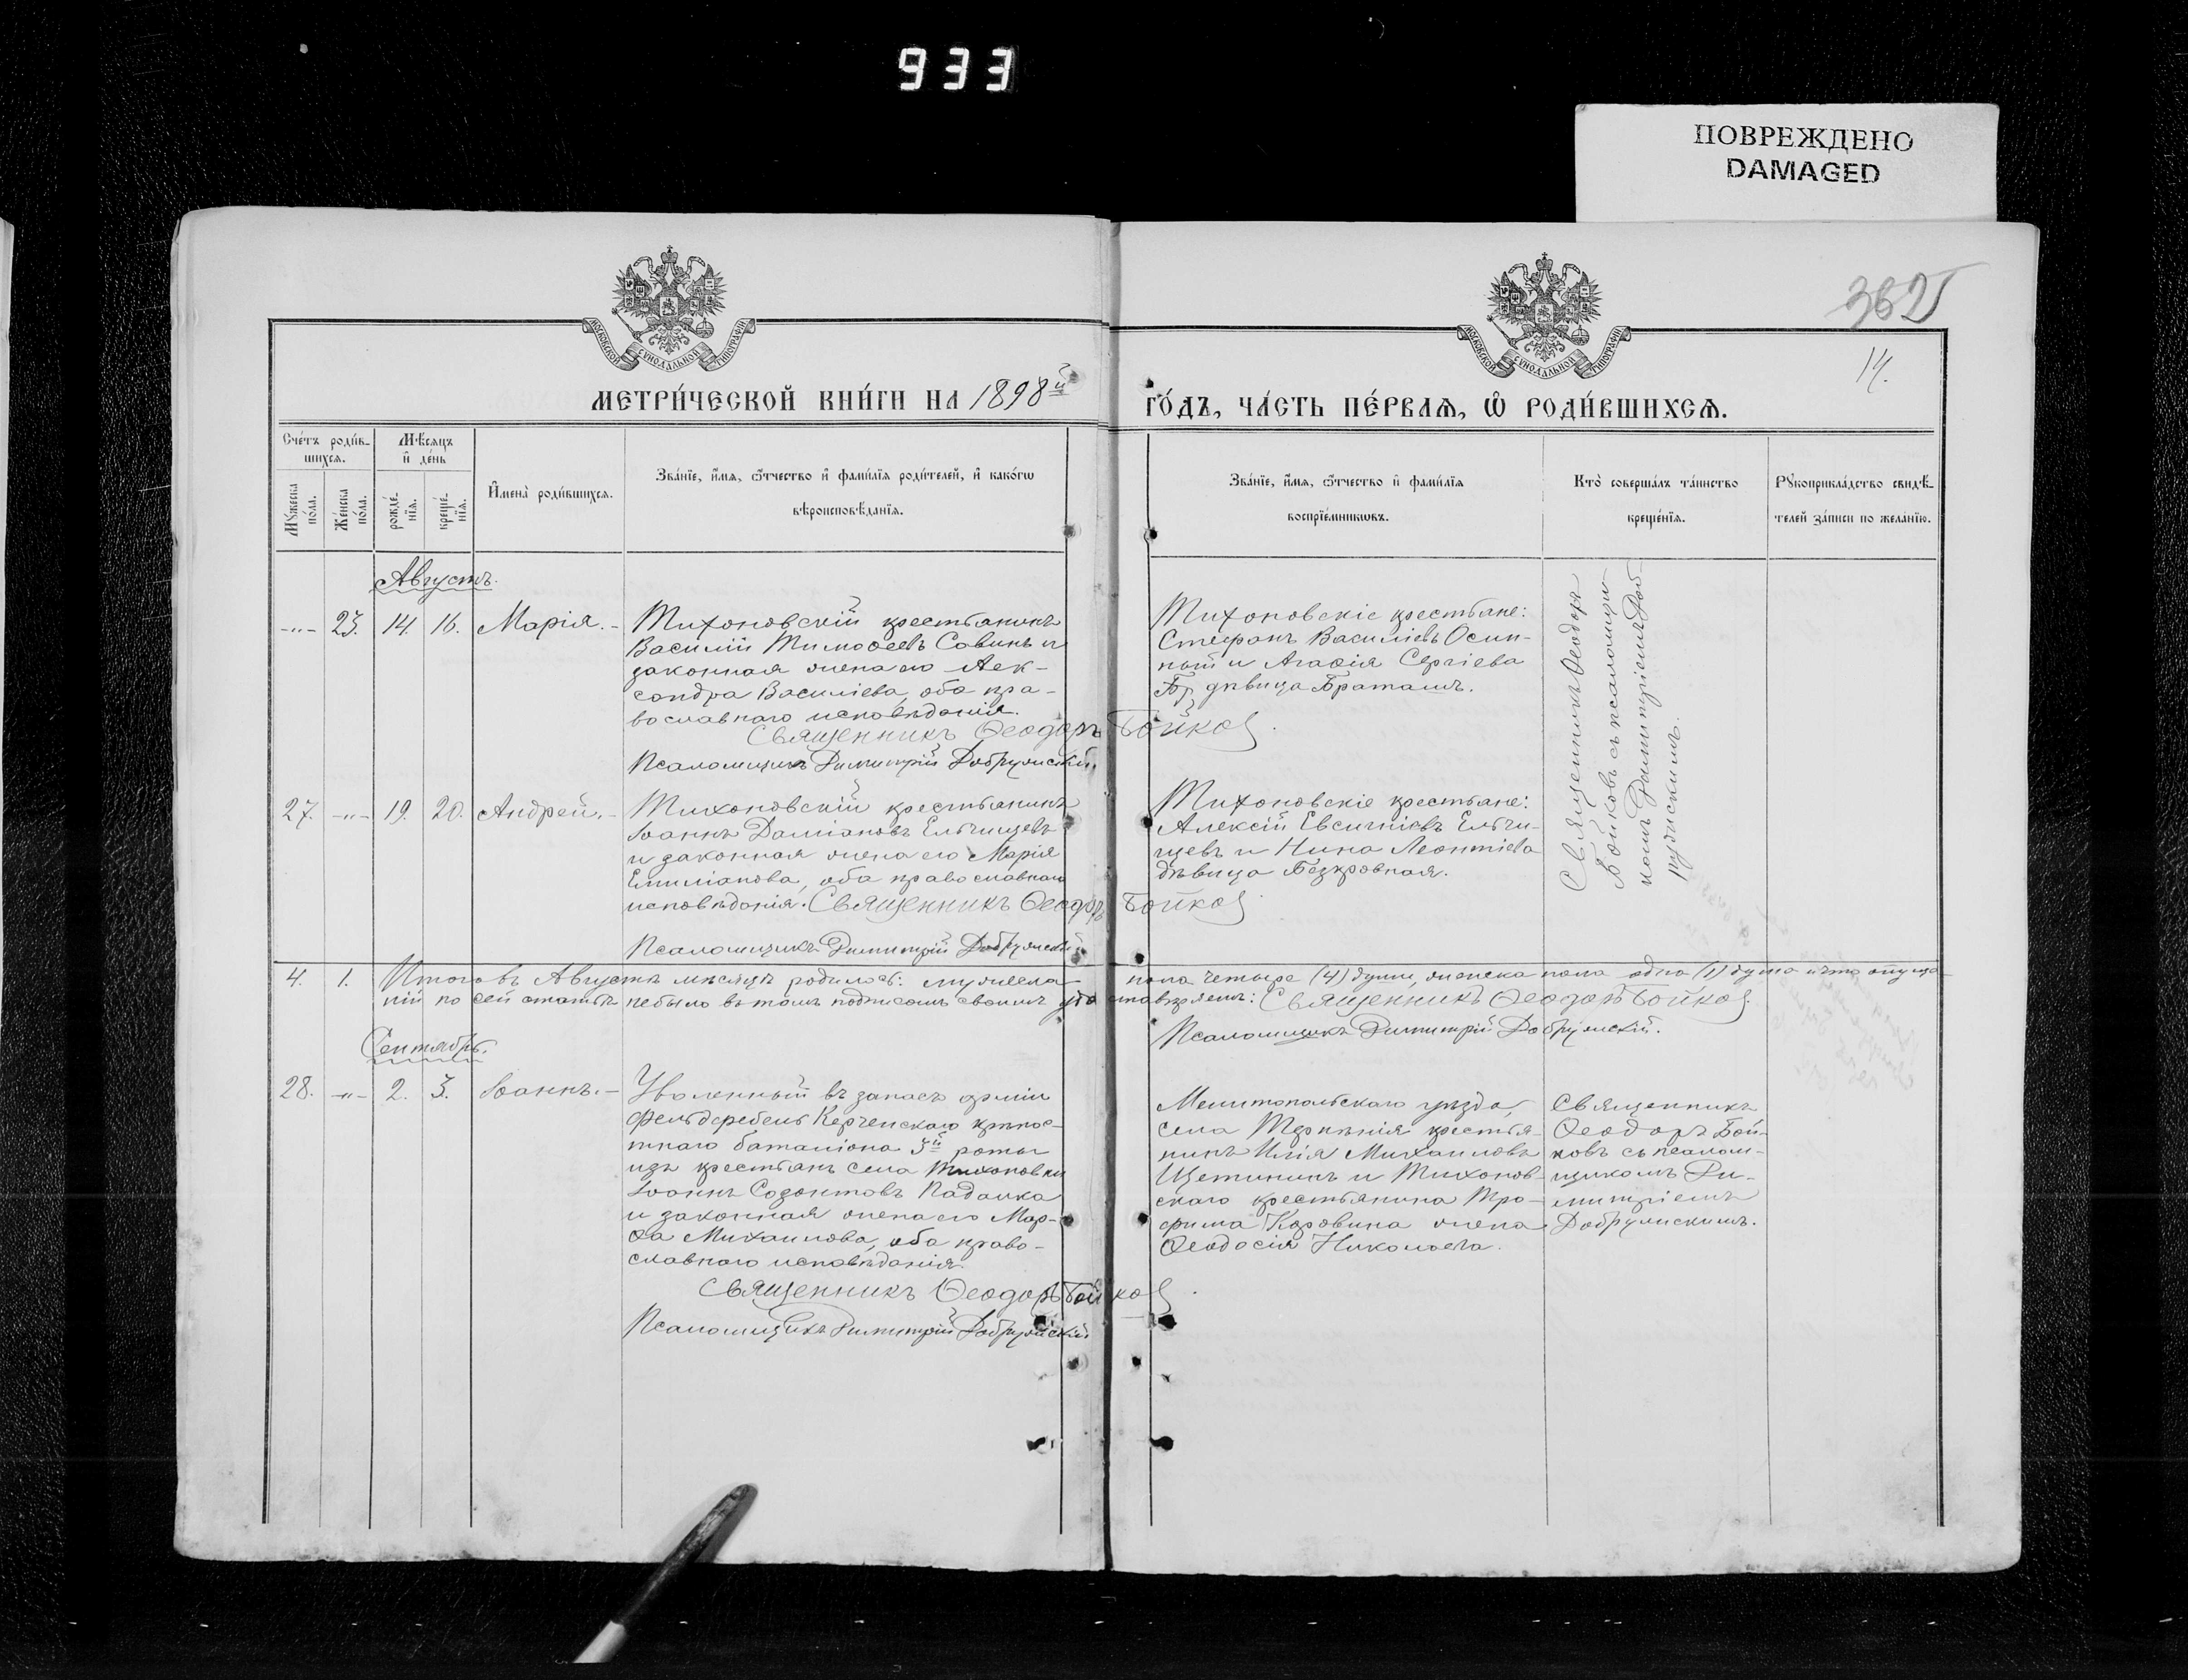 933
ПОВРЕЖДЕНО
DAMAGED
362
14.
МОСКОВСКОЙ СУНОДАЛЬНОЙ ТИПОГРАФІИ
МОСКОВСКОЙ СУНОДАЛЬНОЙ ТИПОГРАФІИ
МЕТРИ́ЧЕСКОЙ КНИ́ГИ НА 1898й
ГО́ДЪ, ЧА́СТЬ ПЕ́РВАѦ, Ѡ РОДИ́ВШИХСѦ.
Сче́тъ роди́в-
шихсѧ.
Мѣ́сѧцъ
и҆ де́нь
Мꙋ́жеска
по́ла.
Же́нска
по́ла.
рожде́-
нїѧ.
креще́-
нїѧ.
И҆мена̀ роди́вшихсѧ.
Зва́нїе, и҆́мѧ, ѻ҆́тчество и҆ фами́лїѧ роди́телей, и҆ како́гѡ
вѣроисповѣ́данїѧ.
Зва́нїе, и҆́мѧ, ѻ҆́тчество и҆ фами́лїѧ
воспрїе́мникѡвъ.
Кто̀ соверша́лъ та́инство
креще́нїѧ.
Рꙋкоприкла́дство свидѣ́-
телей за́писи по жела́нїю.
Августъ.
-"- 23. 14. 16. Марія. -
Тихоновскій крестьянинъ
Василій Тимоѳеевъ Савинъ и
законная жена его Алек-
сандра Василіева, оба пра-
вославнаго исповѣданія.
Священникъ Ѳеодоръ Бойковъ.
Псаломщикъ Димитрій
Тихоновскіе крестьяне:
Стефанъ Василіевъ Осип-
ный и Агаѳія Сергіева
дѣвица Браташъ.
Священникъ Ѳеодоръ
Бойковъ съ псаломщи-
комъ Димитріемъ
27. -"- 19. 20. Андрей. -
Тихоновскій крестьянинъ
Іоаннъ Даміановъ Ельчищевъ
и законная жена его Марія
Емиліанова, оба православнаго
исповѣданія. Священникъ Ѳеодоръ Бойковъ
Псаломщикъ Димитрій
Тихоновскіе крестьяне:
Алексій Евсигніевъ Ельчи-
щевъ и Нина Леонтіева
дѣвица Безкровная.
4. 1. Итого въ Августѣ мѣсяцѣ родилось: мужеска пола четыре (4) души, женска пола одна (1) душа и что опуще-
ній по сей статьѣ небыло въ томъ подписомъ своимъ удостовѣряемъ: Священникъ Ѳеодоръ Бойковъ
Псаломщикъ Димитрій
Сентябрь.
28. -"- 2. 3. Іоаннъ. -
Уволенный въ запасъ арміи
фельдфебель Керченскаго крѣпос-
тнаго баталіона 3й роты
изъ крестьянъ села Тихоновки
Іоаннъ Созонтовъ Падалка
и законная жена его Мар-
ѳа Михаилова, оба право-
славнаго исповѣданія.
Священникъ Ѳеодоръ Бойковъ.
Псаломщикъ Димитрій
Мелитопольскаго уѣзда,
села Терпѣнія крестья-
нинъ Илія Михаиловъ
Щетининъ и Тихонов-
скаго крестьянина Тро-
фима Коровина жена
Ѳеодосія Николаева.
Священникъ
Ѳеодоръ Бой-
ковъ съ псалом-
щикомъ Ди-
митріемъ